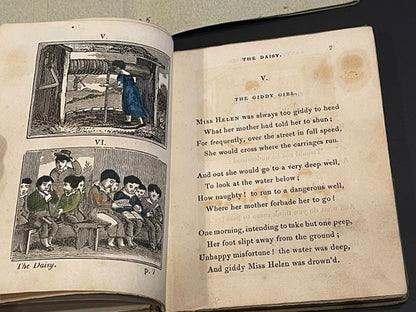 V.
VI.
The Daisy.
p. 7
THE DAISY.
7
V.
THE GIDDY GIRL.
MISS HELEN was always too giddy to heed
What her mother had told her to shun;
For frequently, over the street in full speed,
She would cross where the carriages run.
And out she would go to a very deep well,
To look at the water below;
How naughty! to run to a dangerous well,
Where her mother forbade her to go!
One morning, intending to take but one peep,
Her foot slipt away from the ground;
Unhappy misfortune! the water was deep,
And giddy Miss Helen was drown'd.